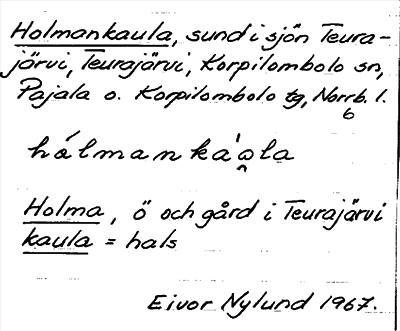 Holmankaula, sund i sjön Teura-
järvi, Teurajärvi, Korpilombolo sn,
Pajala o. Korpilombolo tg, Norrb. l.
6
hålmanka'o̯la
Holma, ö och gård i Teurajärvi
kaula = hals
Eivor Nylund 1967.